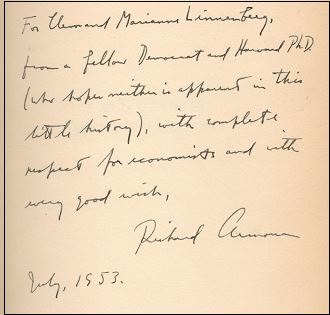 For Clem and Marianne Linnenberg,
from a fellow Democrat and Harvard Ph.D.
(who hopes neither is apparent in this
little history), with complete
respect for economists and with
every good wish,
Richard Armour
July, 1953.